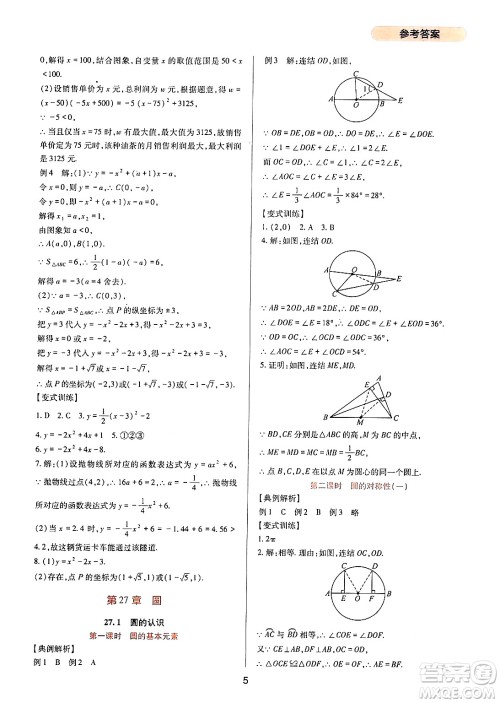 参考答案
0,解得 x=100,结合图象,自变量 x 的取值范围是 50<x
<100.
(2)设销售单价为 x 元,总利润为 w 元,则 w=
(x-50)(-5x+500)=-5x²+750x-25000.
∵-5<0
∴当且仅当 x=75 时,w 有最大值,即 w=3125,故销
售单价定为 75 元时,该种油茶的月销售利润最大,最大利
润是 3125 元.
例 4 解:(1)∵y=-x²+(a+1)x-a,令 y=0,即-x²+
(a+1)x-a=0.
解得 x₁=a,x₂=1.
由图象知 a<0
∴A(a,0),B(1,0).
∵S△ABC=6,∴1/2(1-a)(-a)=6.
解得 a=-3(a=4 舍去).
(2)∵a=-3,∴C(0,3).
∵S△ABP=S△ABC,∴点 P 的纵坐标为±3.
把 y=3 代入 y=-x²-2x+3 得-x²-2x+3=3.
解得 x=0 或 x=-2.
把 y=-3 代入 y=-x²-2x+3 得-x²-2x+3=-3.
解得 x=-1+√7或 x=-1-√7.
∴点 P 的坐标为(-2,3)或(-1+√7,-3)或(-1-√7,-3).
【变式训练】
1. D 2. C 3. y=2/1
4. y=-2x²+6x-4 5. ①②③
6. y=-2x²+4x-8.
7. 解:(1)设抛物线所对应的函数表达式为 y=ax²+6.
∵抛物线经过点(4,2),∴16a+6=2,∴a=-1/4.
∴抛物线所对应的函数表达式为 y=-1/4x²+6.
(2)当 x=2.4 时,y=-1/4x²+6=-1.44+6=4.56>
4.2,故这辆货运卡车能通过该隧道.
(3)存在,点的坐标为(1+√5,1+√5)或(1-√5,1-√5).
第 27 章 圆
27.1 圆的认识
第一课时 圆的基本元素
【典例解析】
例 1 B 例 2 A
例 3 解:连结 OD,如图.
∵OB=DE,OB=OD,
∴DO=DE,∴∠E=∠DOE.
∵∠1=∠DOE+∠E,∴∠1=2∠E.
∵OC=OD,∴∠C=∠1,∴∠C=2∠E.
∴∠AOC=∠C+∠E=3∠E.
∴∠E=1/3∠AOC=1/3×84°=28°.
【变式训练】
1. (2,0) 2. A 3. A
4. 解:如图,连结 OD.
∵AB=2OD,AB=2DE,∴OD=DE.
∴∠DOE=∠E=18°,∴∠CDO=∠DOE+∠E=36°.
∵OC=OD,∴∠OCD=∠CDO=36°.
∴∠AOC=∠E+∠OCD=54°.
5. 证明:如图,连结 ME、MD.
∵BD、CE 分别是△ABC 的高,M 为 BC 的中点,
∴ME=MD=MC=MB=1/2BC.
∴点 B、C、D、E 在以点 M 为圆心的同一圆上.
第二课时 圆的对称性(一)
【典例解析】
例 1 C 例 2 C 例 3 B
【变式训练】
1. 2π
2. 解:相等.理由如下:连结 OC、OD,如图.
∵AC与BD相等,∴∠COE=∠DOF.
∵CE⊥AB,DF⊥AB,
∴∠CEO=∠DFO=90°.
5